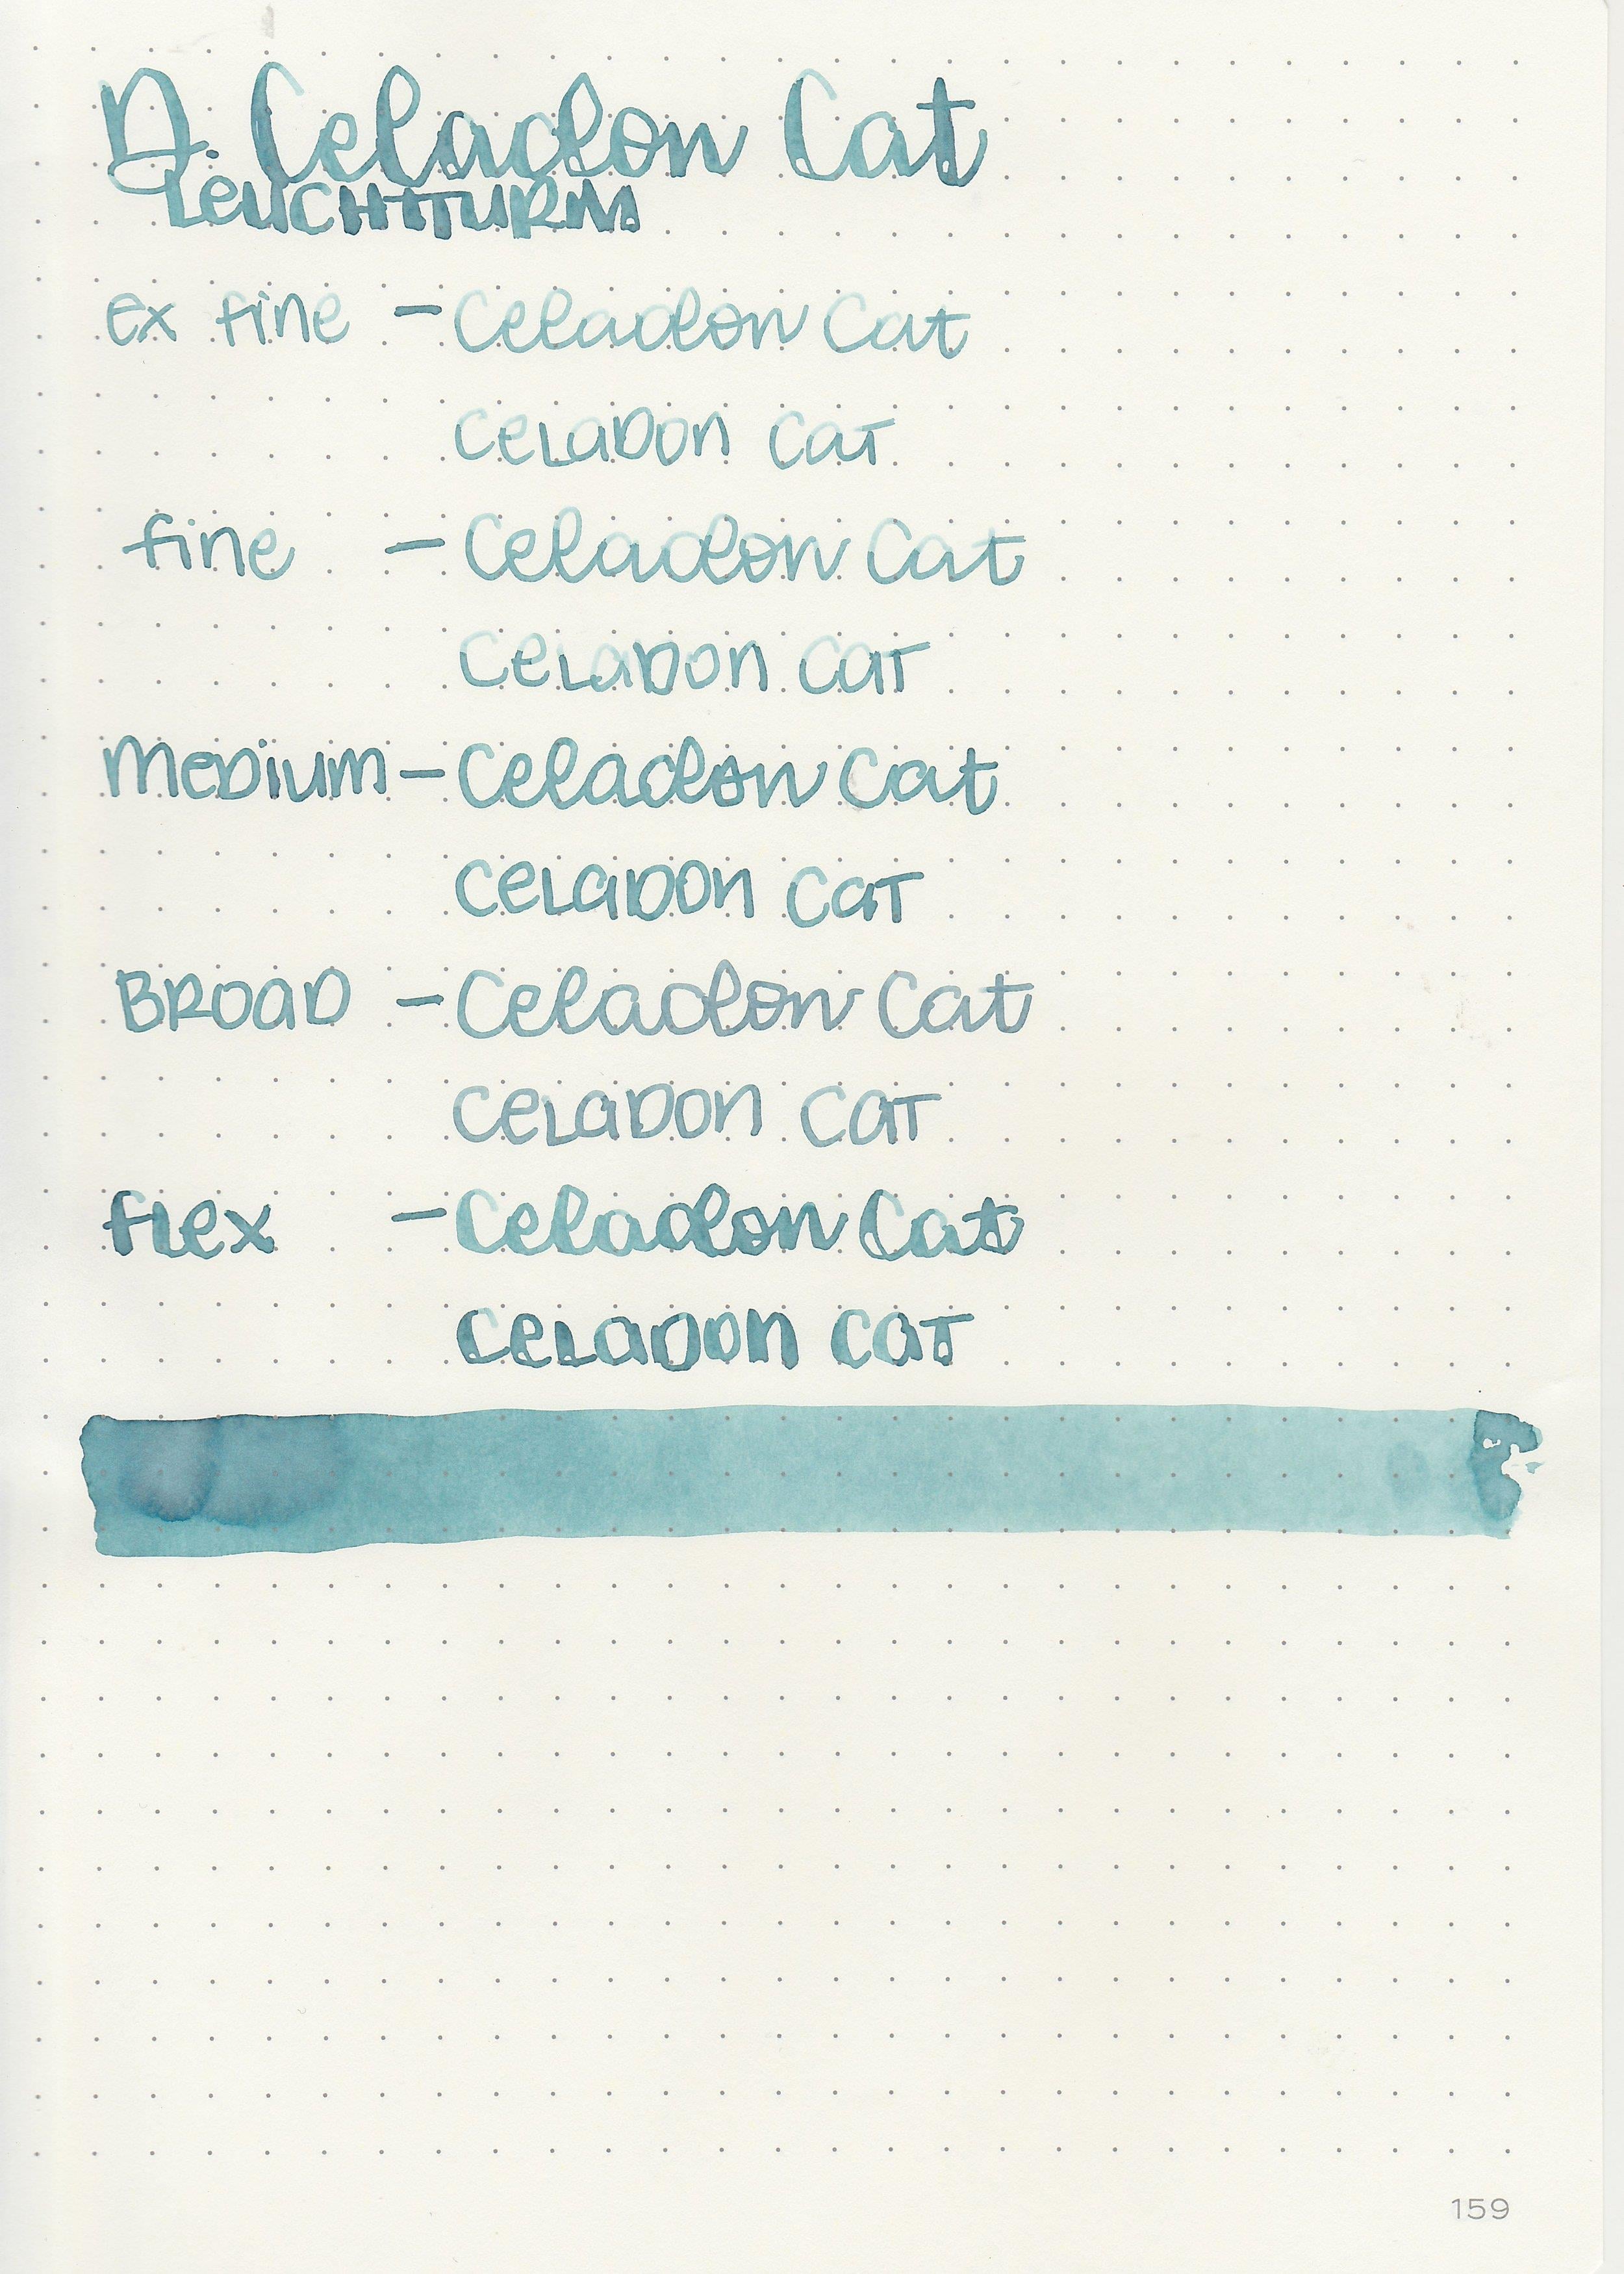 D. Celadon Cat
LEUCHTTURM
ex fine - Celadon Cat
CELADON CAT
fine - Celadon Cat
CELADON CAT
MEDIUM - Celadon Cat
CELADON CAT
BROAD - Celadon Cat
CELADON CAT
flex - Celadon Cat
CELADON CAT
159